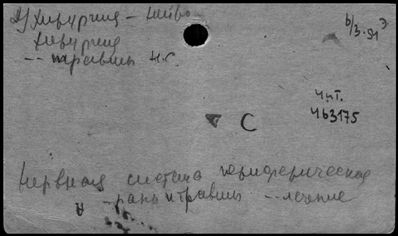 Хирургия -
Хирургия
-- травмы н.с.
6/3-51 Э
Чит.
463175
С
Нервная система периферическая
- раны и травмы -- лечение